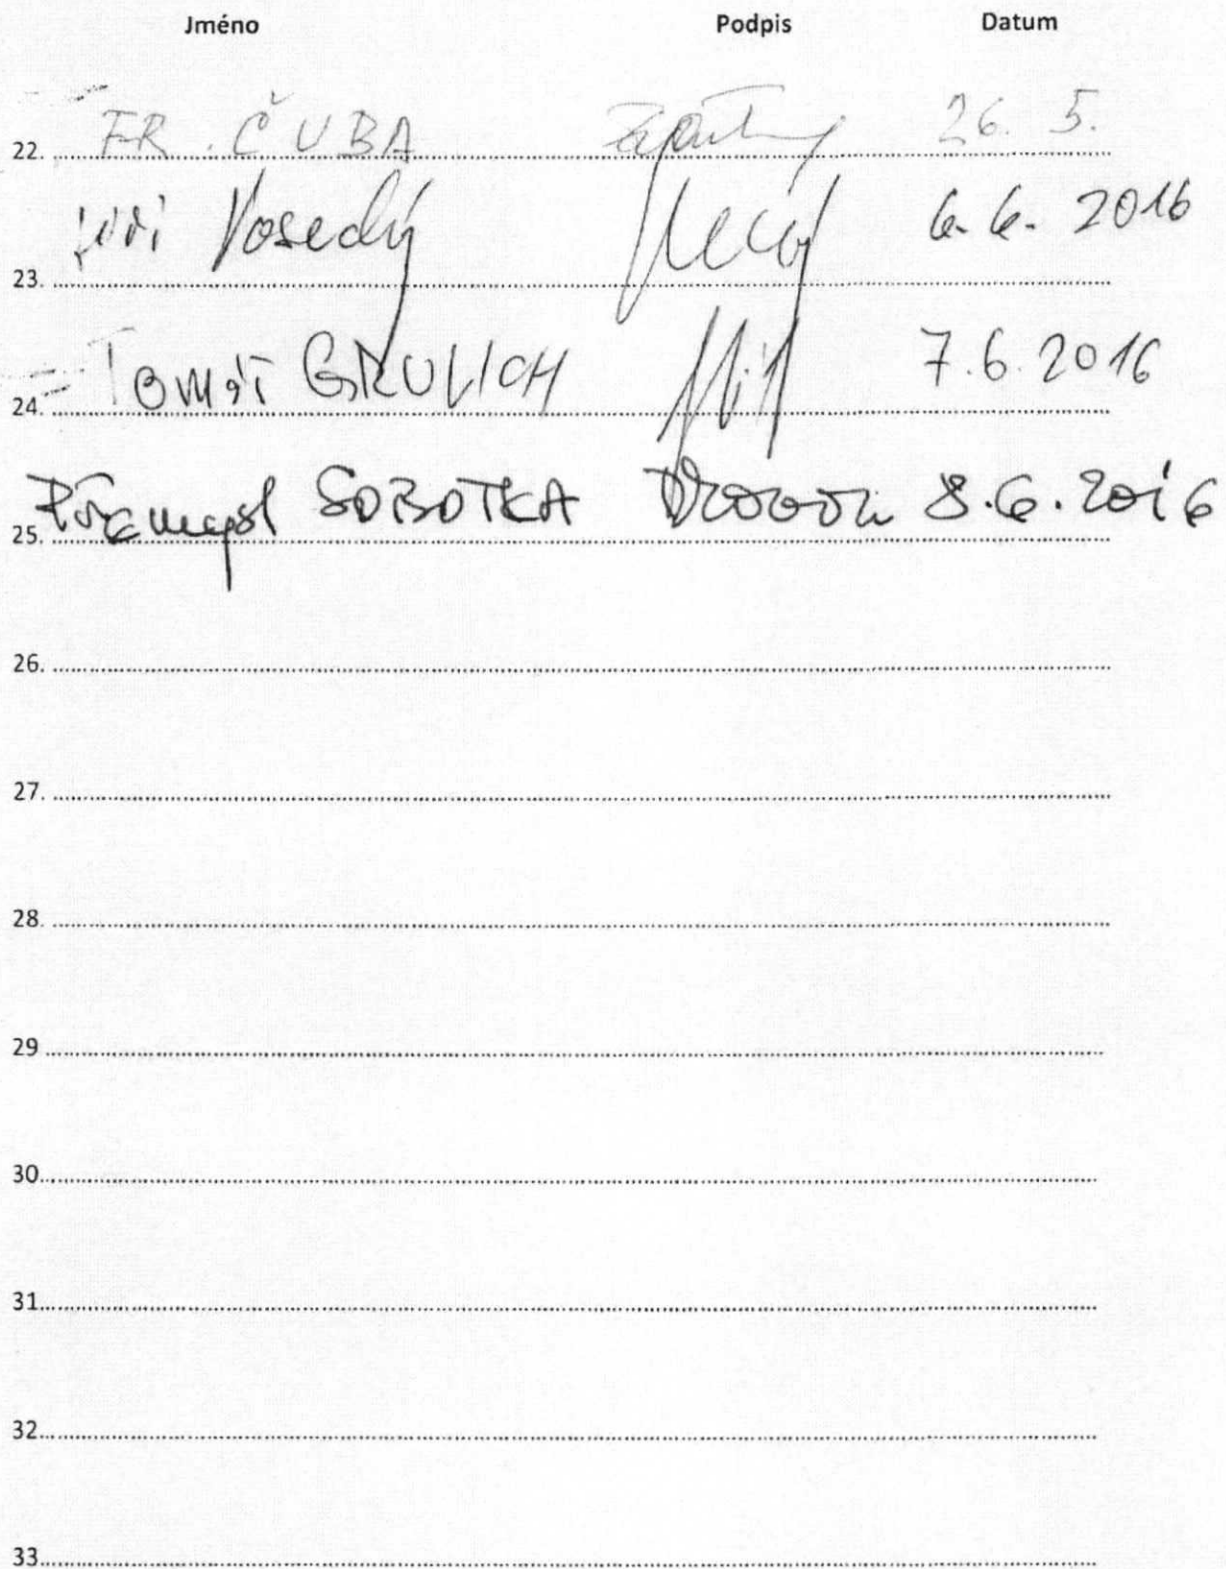 Jméno Podpis Datum
22. FR. ČUBA 26. 5.
23. Jiří Vosecký 6. 6. 2016
24. Tomáš GRULICH 7.6.2016
25. Přemysl SOBOTKA 8.6.2016
26.
27.
28.
29
30
31
32
33